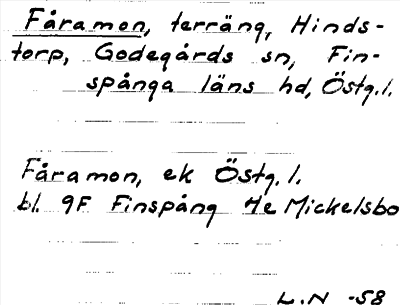 Fåramon, terräng, Hinds-
torp, Godegårds sn, Fin-
spånga läns hd, Östg.l.
Fåramon, ek Östg.l.
bl. 9F Finspång 4e Mickelsbo
L.N -58